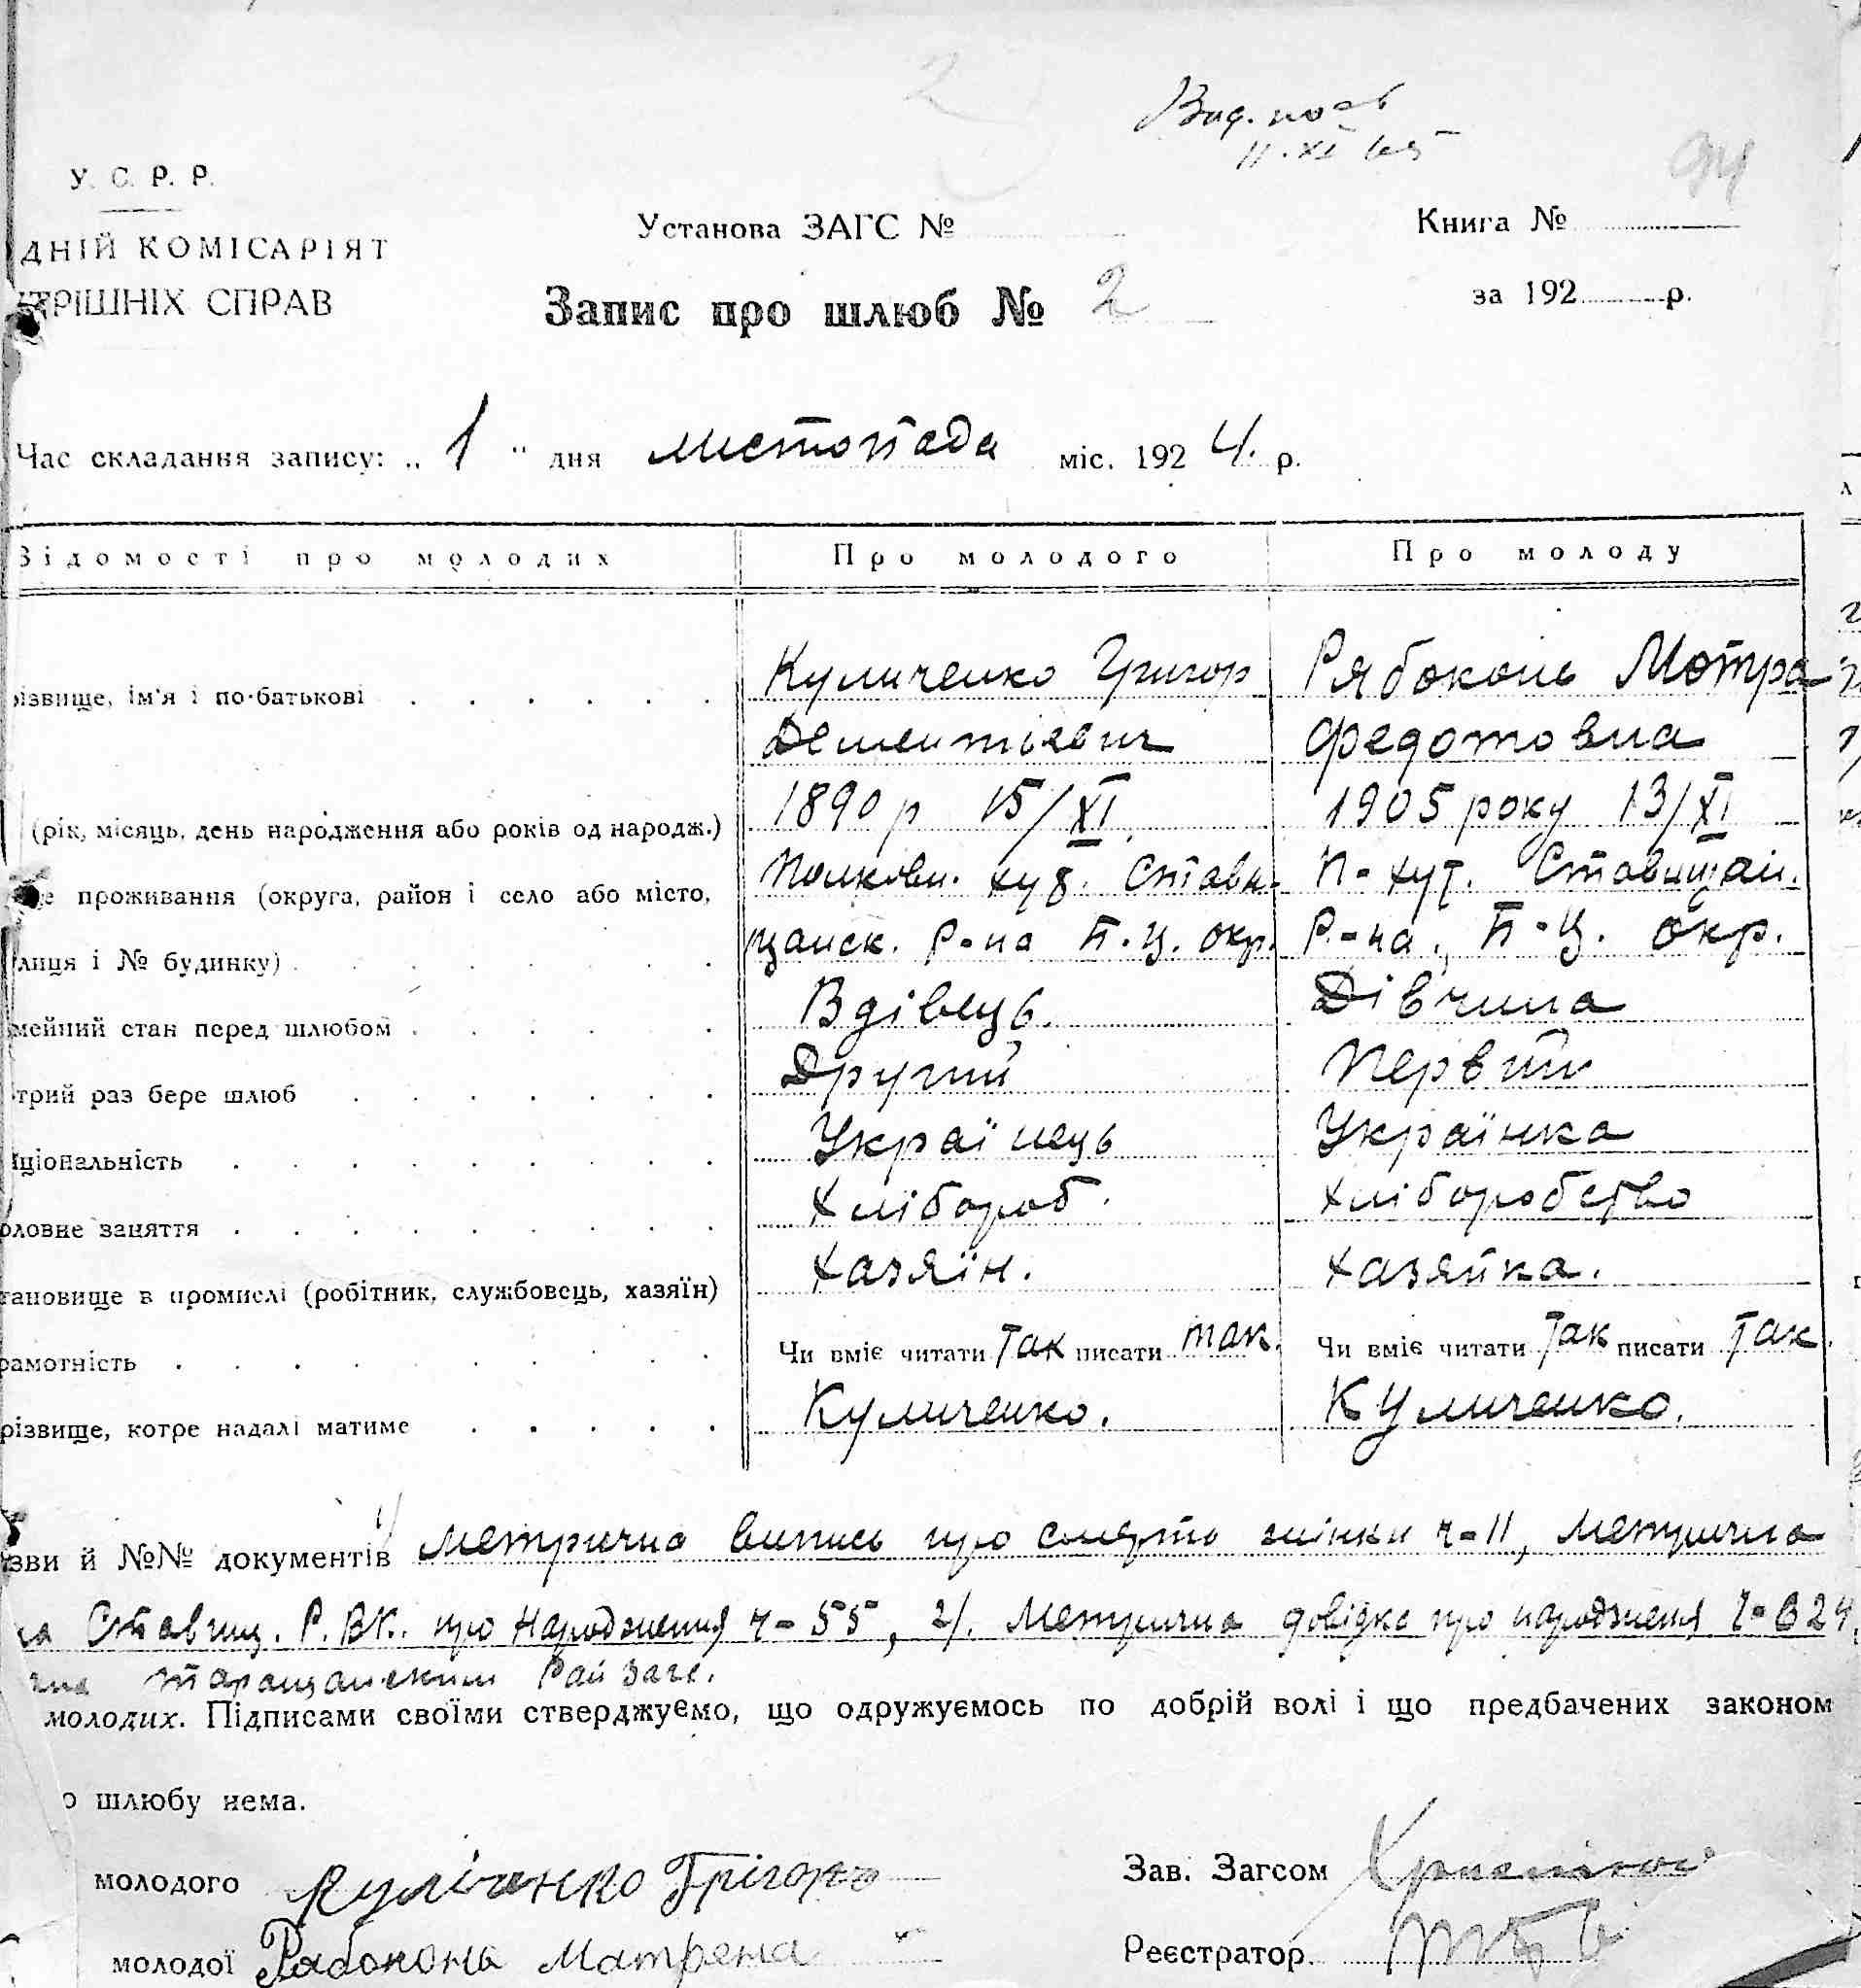 2
Вид. по
11. XI
94
У. С. Р. Р.
Установа ЗАГС №
Книга №
ДНІЙ КОМІСАРІЯТ
ТРІШНІХ СПРАВ
Запис про шлюб № 2
за 192 р.
Час складання запису: „ 1 " дня листопада міс. 1924. р.
Відомості про молодих Про молодого Про молоду
різвище, ім'я і по-батькові Куличенко Григор Рябоконь Мотра
Дементієвич Федотовна
(рік, місяць, день народження або років од народж.) 1890 р 15/XI. 1905 року 13/XI
це проживання (округа, район і село або місто, Полковн. хут. Стави- П- хут. Ставищан.
лиця і № будинку) щанск. Р-на Б.Ц. окр. Р-на, Б-Ц. окр.
мейний стан перед шлюбом Вдівець. Дівчина
трий раз бере шлюб Другий Первий
ціональність Українець Українка
оловне заняття Хлібороб. Хліборобство
тановище в промислі (робітник, службовець, хазяїн) Хазяїн. Хазяйка.
рамотність Чи вміє читати Так писати так. Чи вміє читати Так писати Так.
різвище, котре надалі матиме Куличенко. Куличенко.
зви й №№ документів 1/ Метрична випись про смерть жінки ч-11, Метрична
Ставищ. Р.В.К. про Народження ч-55, 2/. Метрична довідка про народженя ч-624,
на Таращанским Райзагс.
молодих. Підписами своїми стверджуємо, що одружуємось по добрій волі і що предбачених законом
о шлюбу нема.
молодого Куліченко Грігорь Зав. Загсом
молодої Рабоконь Матрена Реєстратор